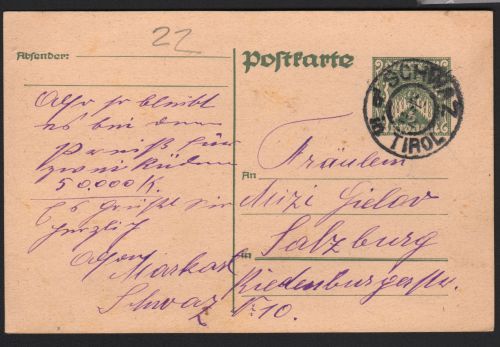 22
Postkarte
Absender:
Also so bleibt
es bei dem
Preiß für
zwei Rüden
50.000 K.
Es Grüßt Sie
herzlich
Schwaz
SCHWAZ
in TIROL
Fräulein
An
Mizi
Salzburg
in
Riedenburgerstr.
Nr. 10.